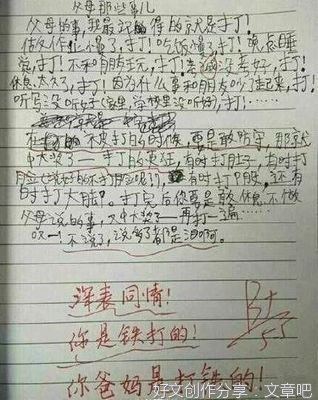 父母那些事儿
父母的事,我最记的得的就是打了!
做家作儿小懂了,打!吃饭懂了打!晚点睡
觉,打!不和朋友玩,打!考试没考好,打!
休息太久了,打!因为什么事和朋友吵了起来,打!
听写没听好(家里,学校里没听好),打!……
在 不 打的时候,要是敢防守,那就
中大奖了——打的更狂,有时打肚子,有时打
脸(说好的不打脸呢!),有时打PP,还有
时打大腿。打完后你要是敢休息,不做
父母说的事,又中大奖了——再打一遍……
哎!不说了,说多了都是泪啊。
深表同情!
你是铁打的!
你爸妈是打铁的!
B+
5.5
好文创作分享:文章吧